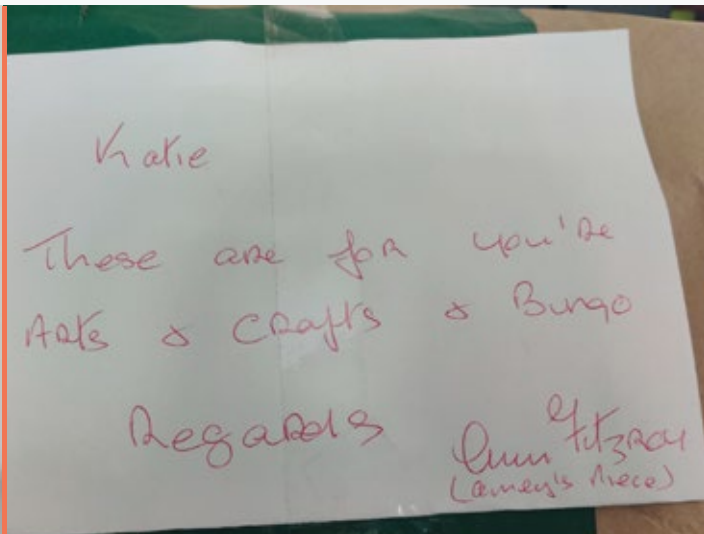 Katie
These are for you're
Arts & Crafts & Bingo
Regards
Ann Fitzroy
(amey's niece)